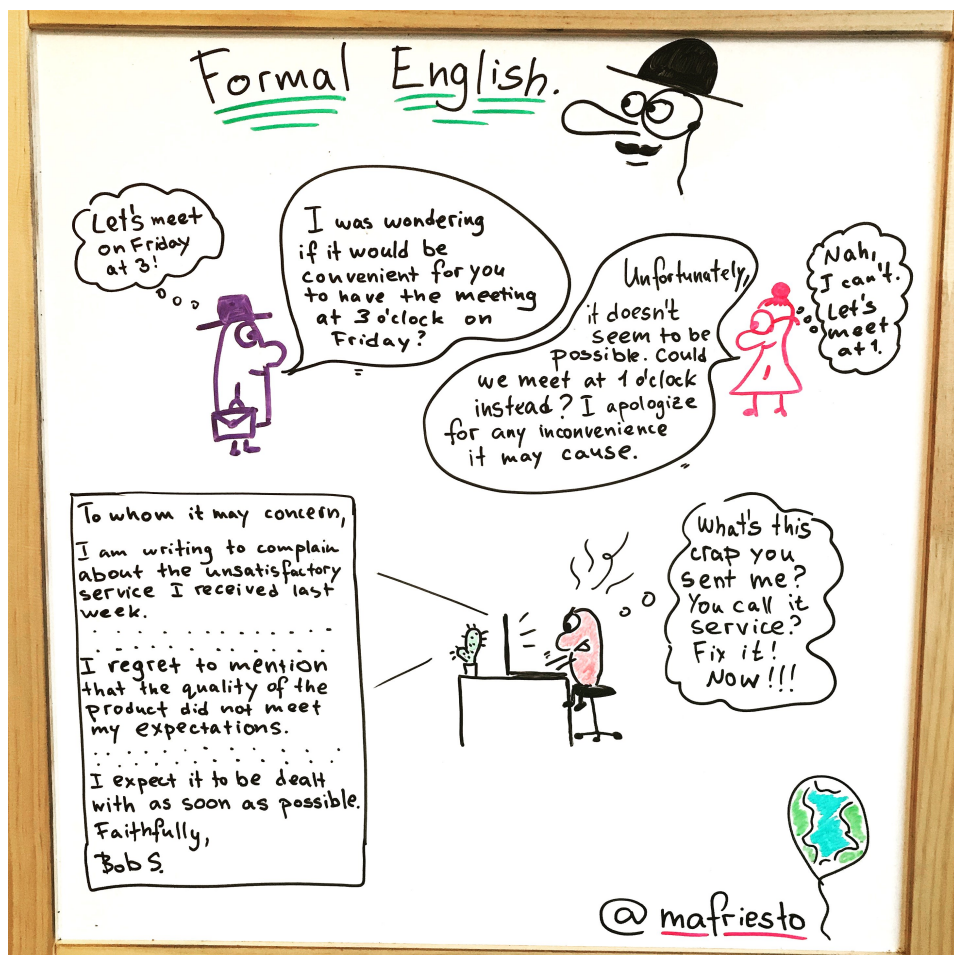 Formal English.
Let's meet
on Friday
at 3!
I was wondering
if it would be
convenient for you
to have the meeting
at 3 o'clock on
Friday?
Unfortunately,
it doesn't
seem to be
possible. Could
we meet at 1 o'clock
instead? I apologize
for any inconvenience
it may cause.
Nah,
I can't.
Let's
meet
at 1.
To whom it may concern,
I am writing to complain
about the unsatisfactory
service I received last
week.
. . . . . . . . . . . . . . . . .
I regret to mention
that the quality of the
product did not meet
my expectations.
. . . . . . . . . . . . . . . . .
I expect it to be dealt
with as soon as possible.
Faithfully,
Bob S.
What's this
crap you
sent me?
You call it
service?
Fix it!
Now!!!
@mafriesto